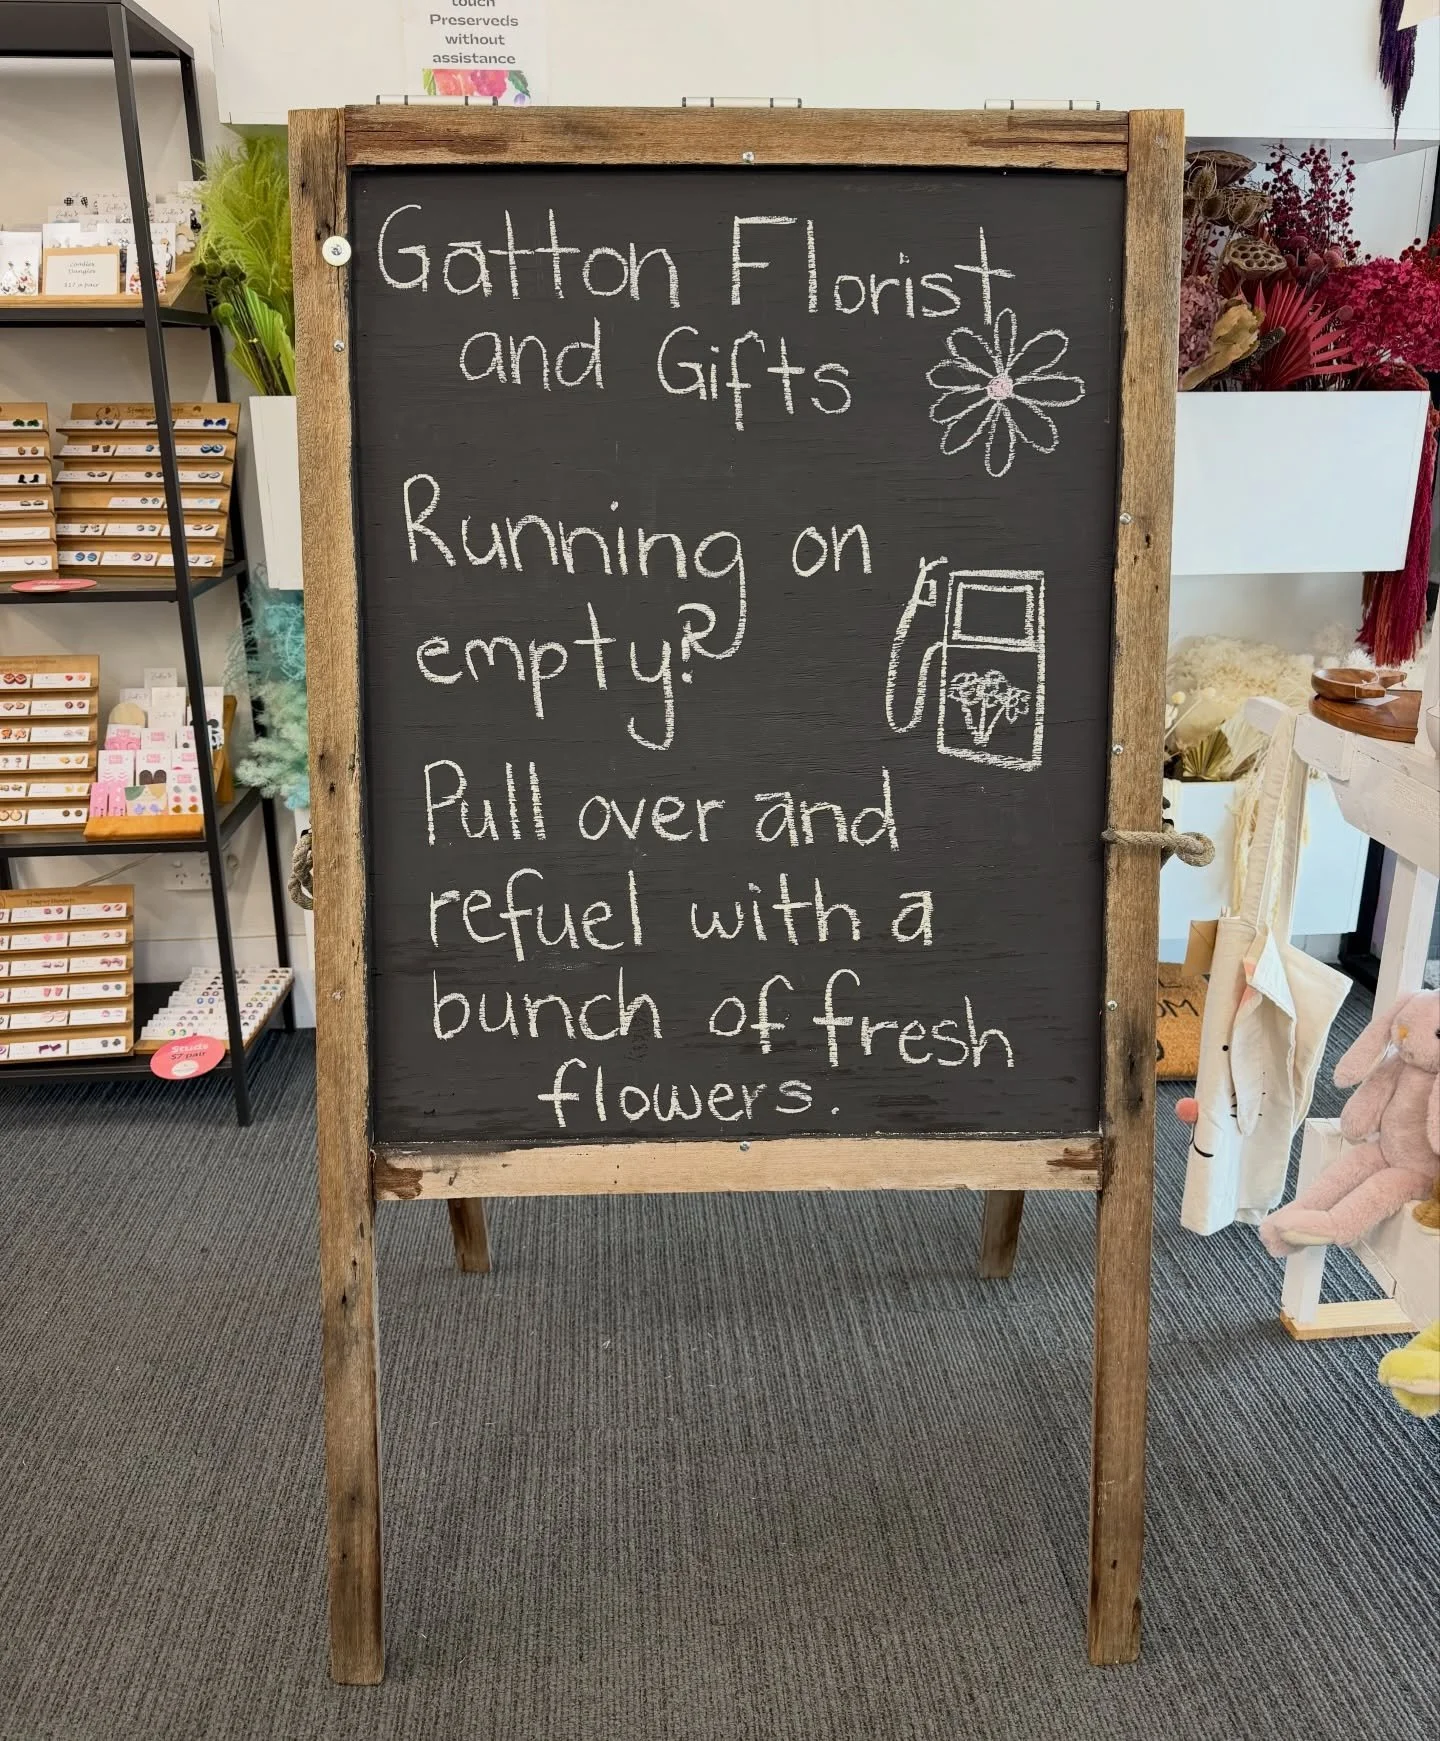 touch
Preserveds
without
assistance
Gatton Florist
and Gifts
Running on
empty?
Pull over and
refuel with a
bunch of fresh
flowers.
Dangles
$17 a pair
Studs
$7 pair
OM